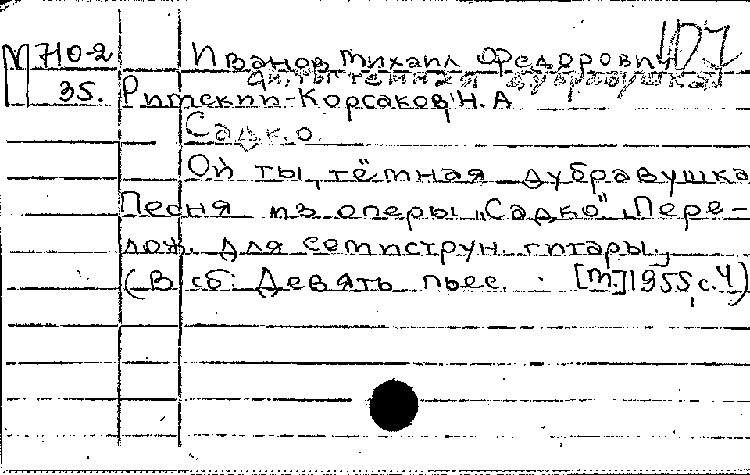 М 710-2 Иванов Михаил Федорович 107
Ой, ты тёмная дубравушка
35. Римский-Корсаков Н. А
Садко.
Ой ты, тёмная дубравушка
Песня из оперы „Садко". Пере-
лож. для семиструн. гитары.
(В сб: Девять пьес. [М.] 1955, с. 4)